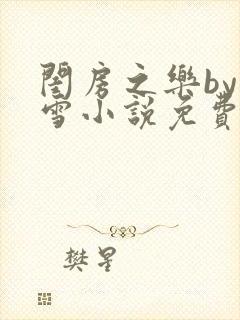 閨房之樂by
雪小說免費
樊星